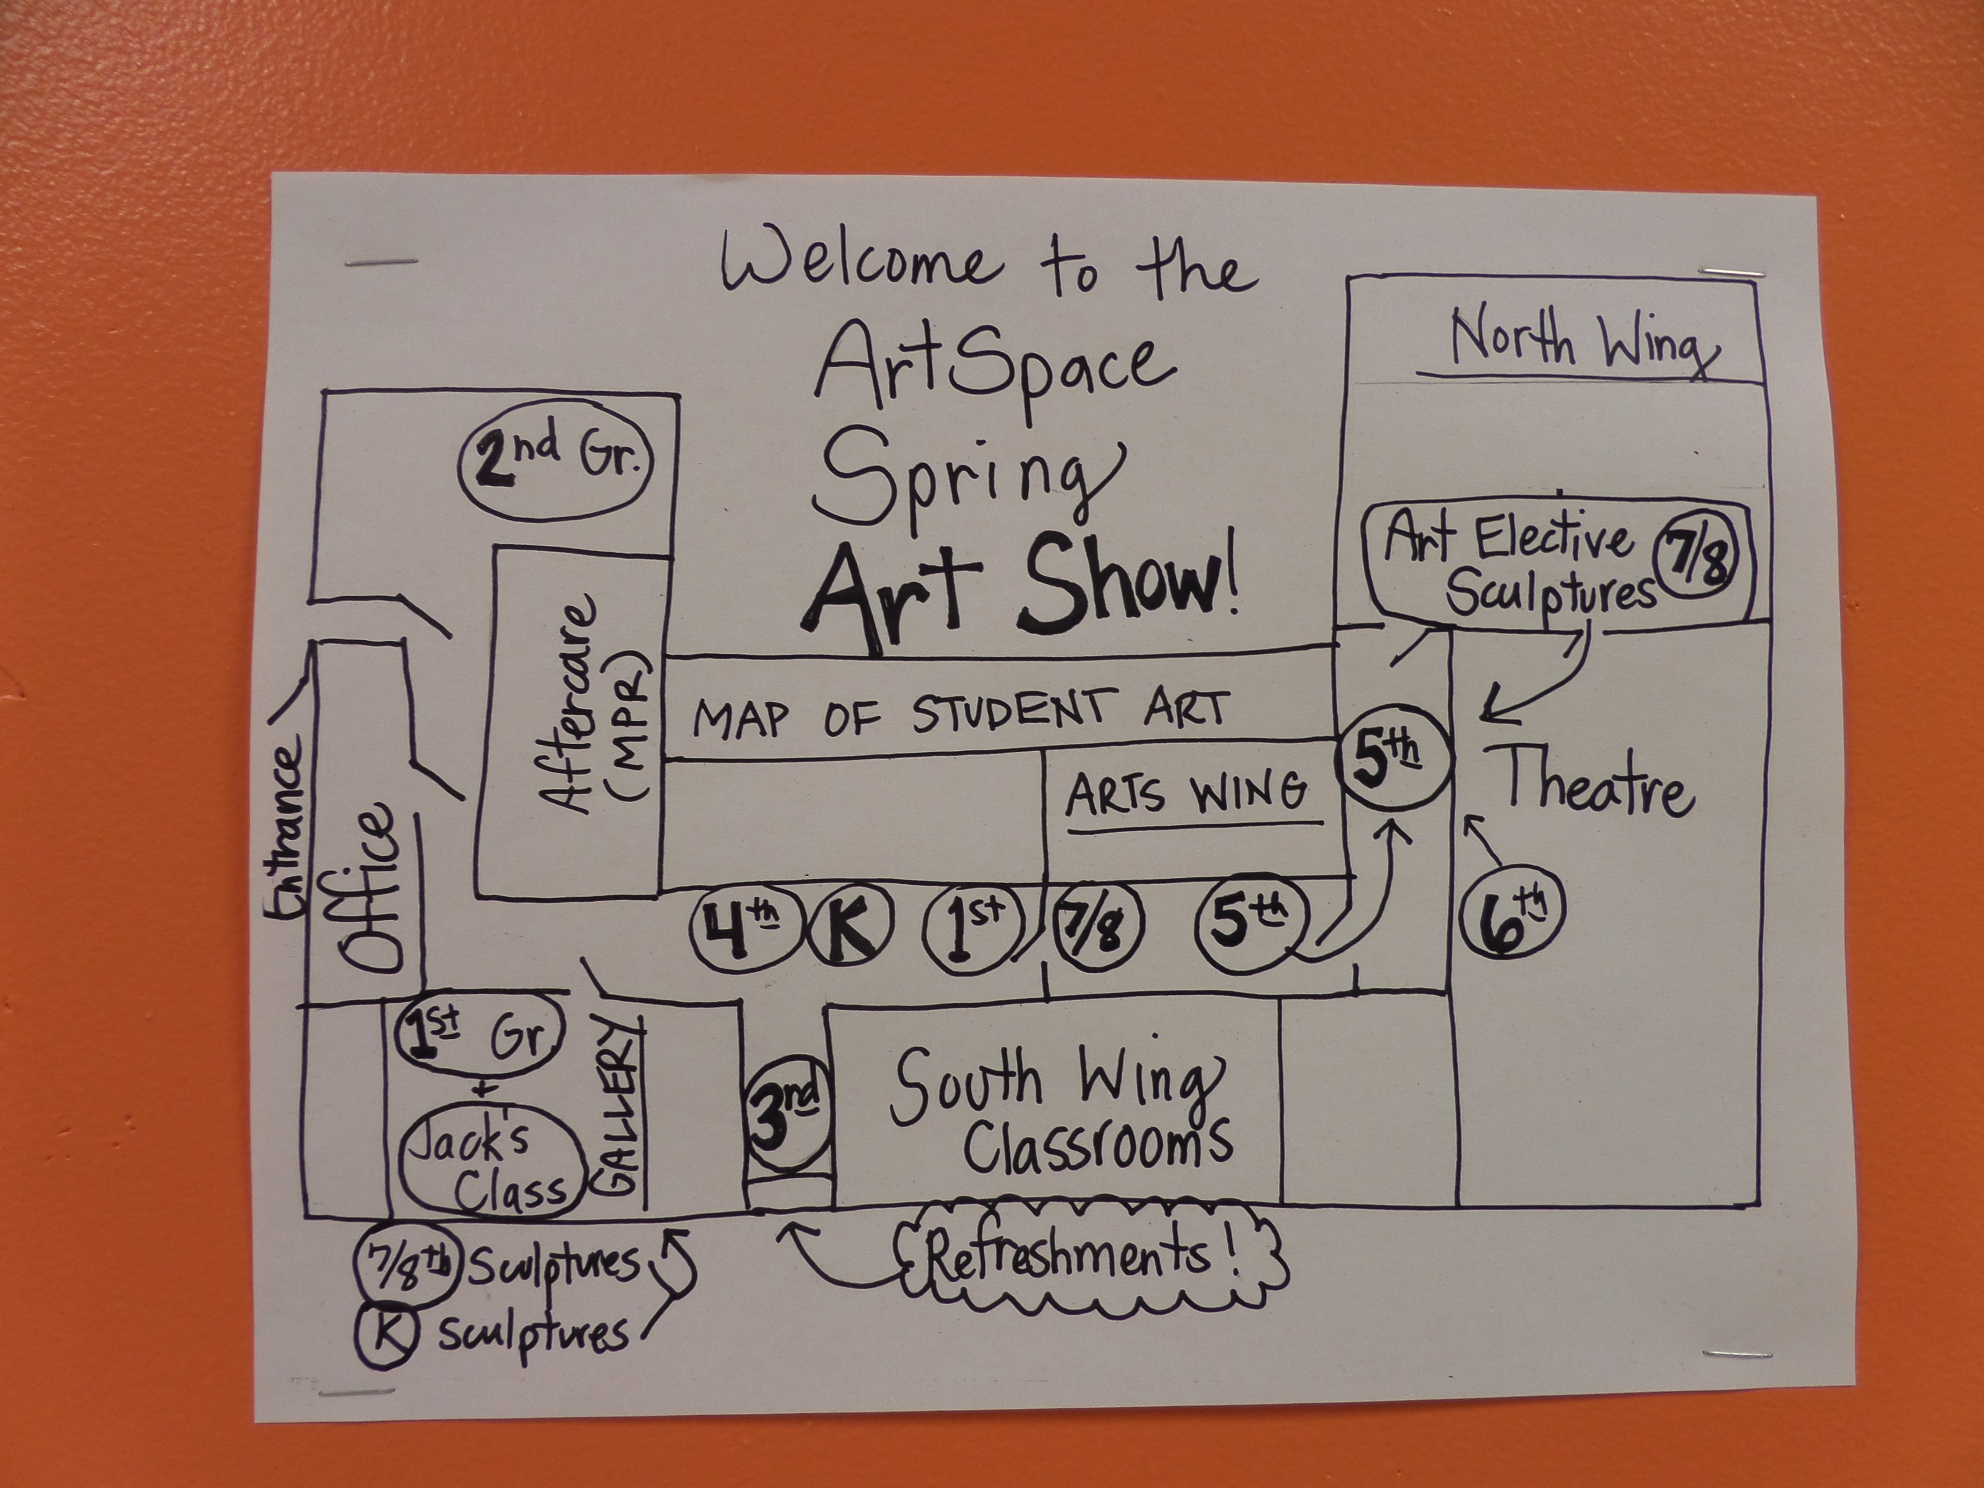 Welcome to the
ArtSpace
Spring
Art Show!
North Wing
2nd Gr.
Art Elective
Sculptures
7/8
Aftercare
(MPR)
MAP OF STUDENT ART
5th
Theatre
ARTS WING
Entrance
Office
4th
K
1st
7/8
5th
6th
1st Gr.
+
Jack's
Class
GALLERY
3nd
South Wing
Classrooms
7/8th Sculptures
K Sculptures
Refreshments!